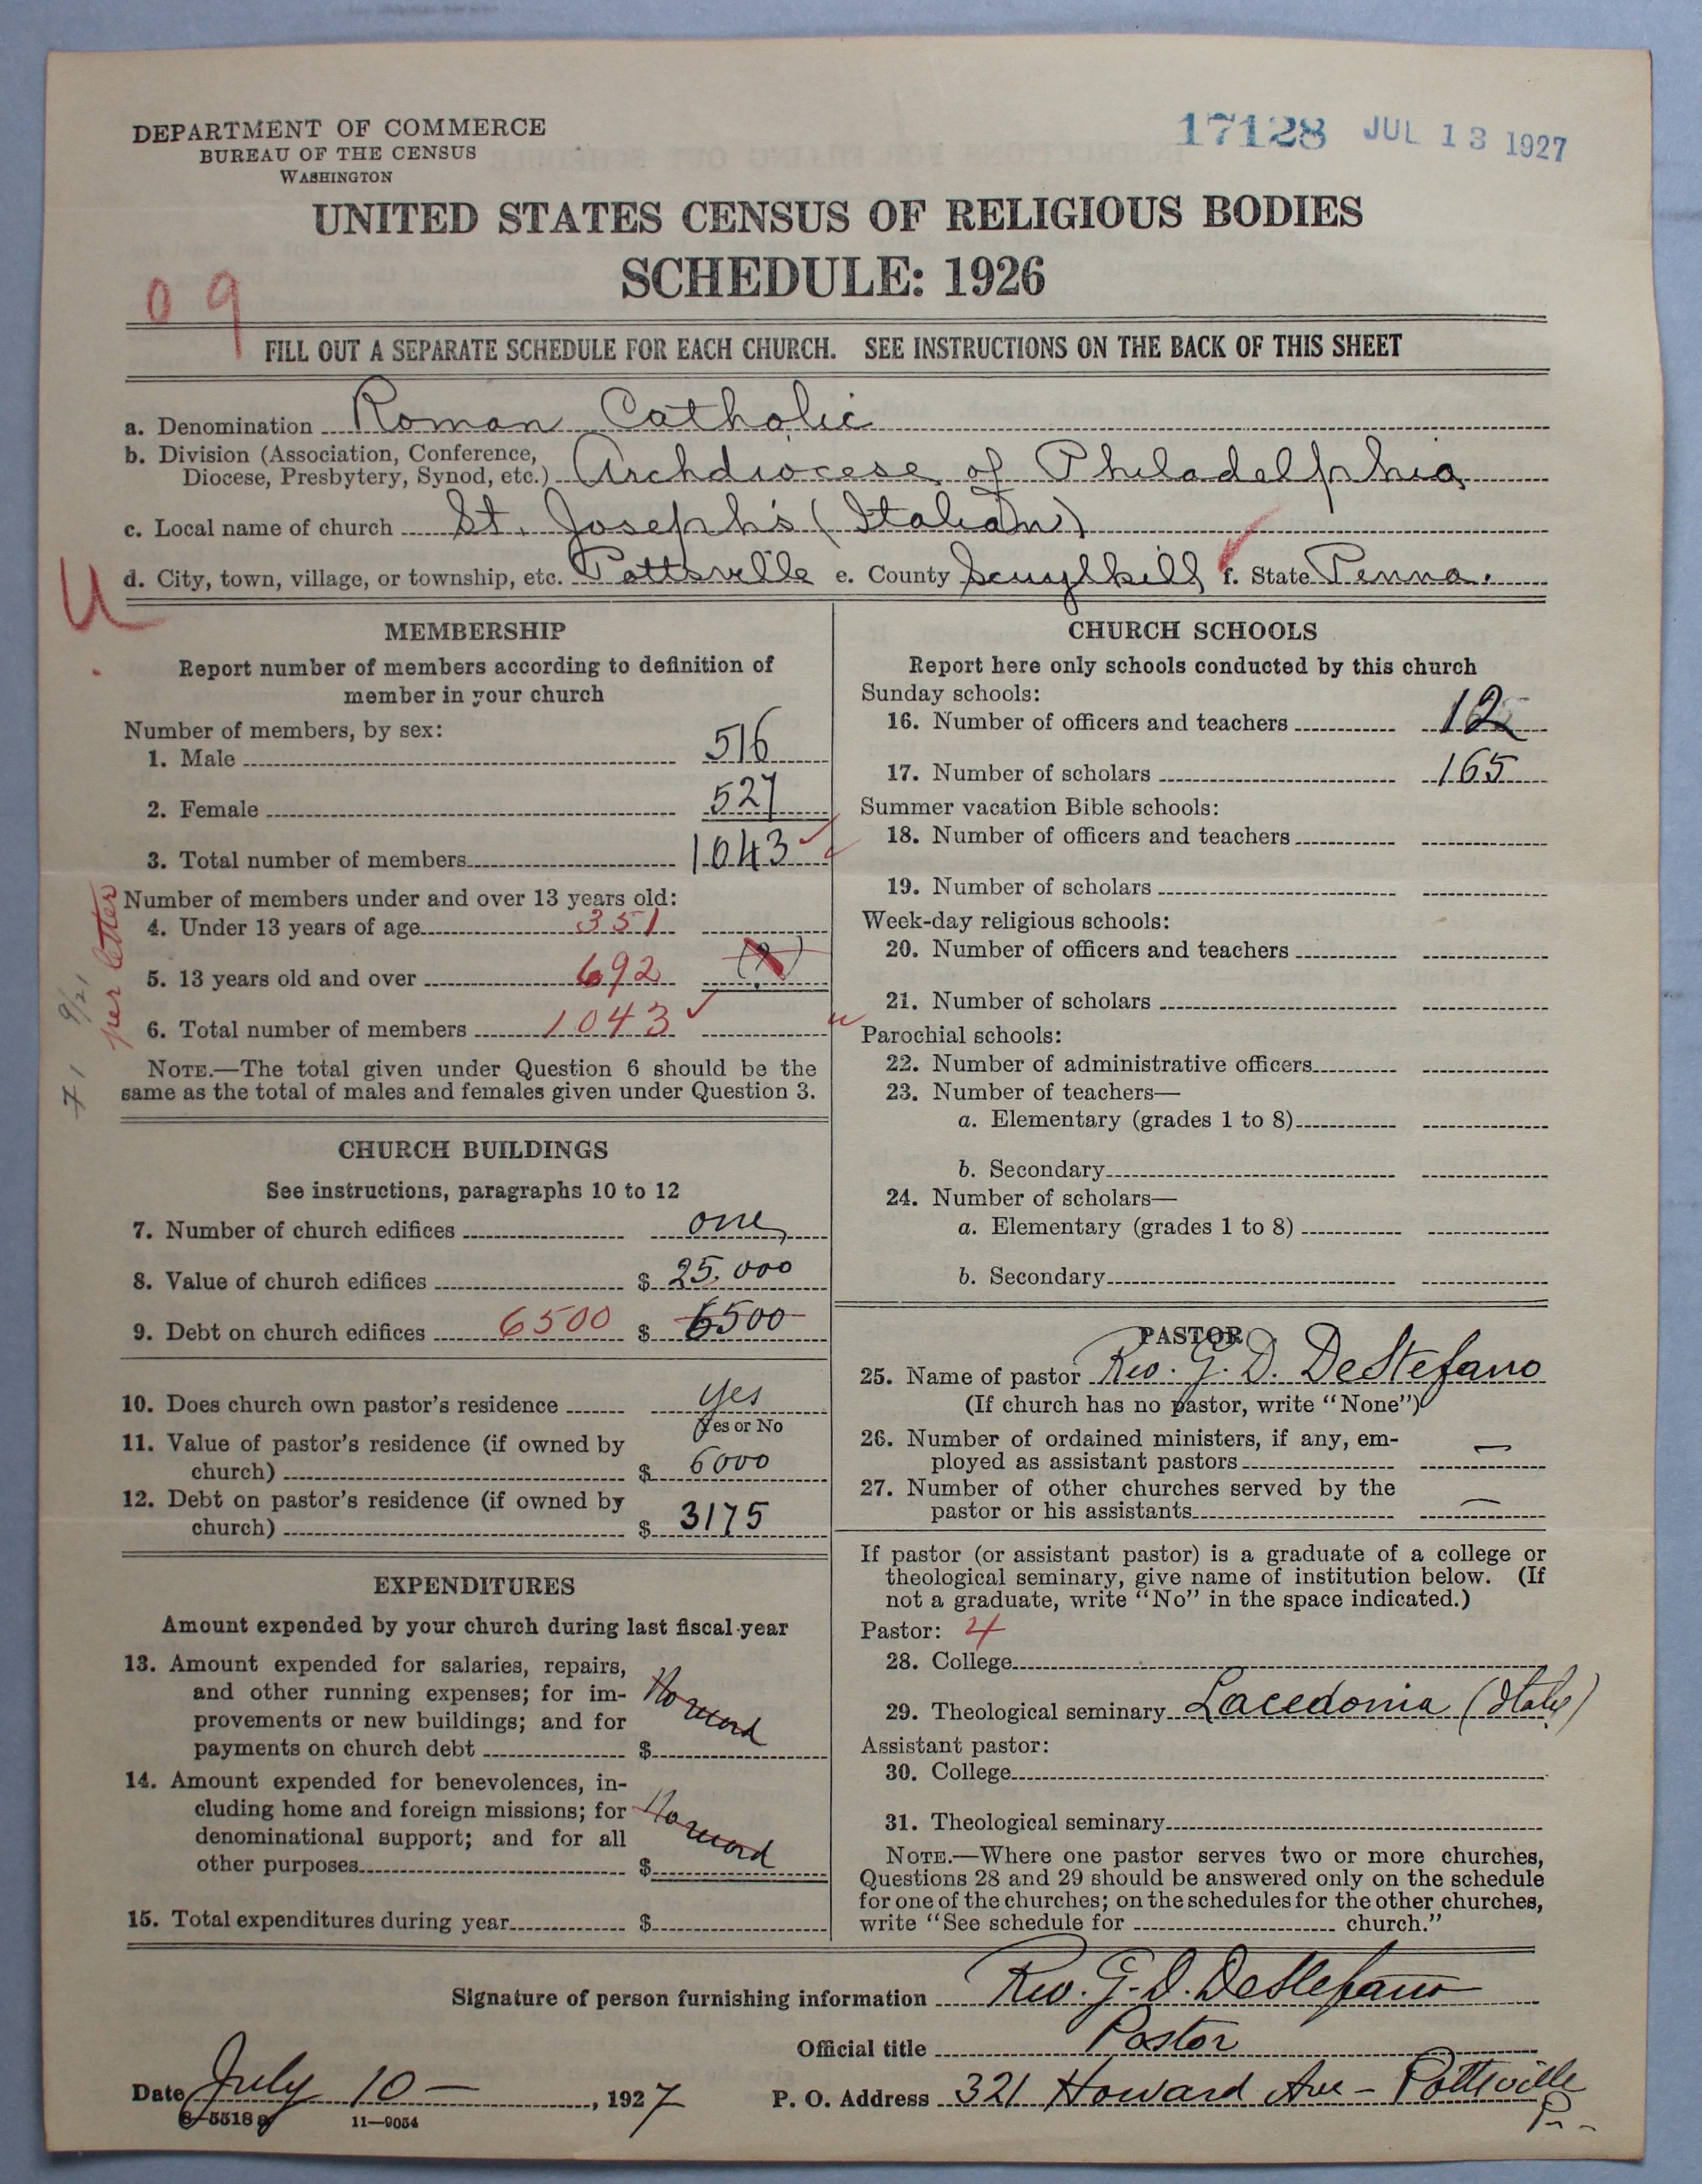 DEPARTMENT OF COMMERCE
BUREAU OF THE CENSUS
WASHINGTON
17128 JUL 13 1927
UNITED STATES CENSUS OF RELIGIOUS BODIES
SCHEDULE: 1926
09
FILL OUT A SEPARATE SCHEDULE FOR EACH CHURCH. SEE INSTRUCTIONS ON THE BACK OF THIS SHEET
a. Denomination Roman Catholic
b. Division (Association, Conference,
Diocese, Presbytery, Synod, etc.) Archdiocese of Philadelphia
c. Local name of church St. Joseph's (Italian)
U
d. City, town, village, or township, etc. Pottsville e. County Scuylkill f. State Penna.
MEMBERSHIP
Report number of members according to definition of
member in your church
Number of members, by sex:
1. Male 516
2. Female 527
3. Total number of members 1043
Number of members under and over 13 years old:
4. Under 13 years of age 351
5. 13 years old and over 692 (?)
6. Total number of members 1043
per letter
9/21
NOTE.—The total given under Question 6 should be the
same as the total of males and females given under Question 3.
CHURCH BUILDINGS
See instructions, paragraphs 10 to 12
7. Number of church edifices one
8. Value of church edifices $ 25,000
9. Debt on church edifices 6500 $ 6500
10. Does church own pastor's residence yes
Yes or No
11. Value of pastor's residence (if owned by
church) $ 6000
12. Debt on pastor's residence (if owned by
church) $ 3175
EXPENDITURES
Amount expended by your church during last fiscal year
13. Amount expended for salaries, repairs,
and other running expenses; for im-
provements or new buildings; and for
payments on church debt $ No record
14. Amount expended for benevolences, in-
cluding home and foreign missions; for
denominational support; and for all
other purposes $ No record
15. Total expenditures during year $
CHURCH SCHOOLS
Report here only schools conducted by this church
Sunday schools:
16. Number of officers and teachers 12
17. Number of scholars 165
Summer vacation Bible schools:
18. Number of officers and teachers
19. Number of scholars
Week-day religious schools:
20. Number of officers and teachers
21. Number of scholars
Parochial schools:
22. Number of administrative officers
23. Number of teachers—
a. Elementary (grades 1 to 8)
b. Secondary
24. Number of scholars—
a. Elementary (grades 1 to 8)
b. Secondary
PASTOR
25. Name of pastor Rev. G. D. DeStefano
(If church has no pastor, write "None")
26. Number of ordained ministers, if any, em-
ployed as assistant pastors —
27. Number of other churches served by the
pastor or his assistants —
If pastor (or assistant pastor) is a graduate of a college or
theological seminary, give name of institution below. (If
not a graduate, write "No" in the space indicated.)
Pastor: 4
28. College
29. Theological seminary Lacedonia (Italy)
Assistant pastor:
30. College
31. Theological seminary
NOTE.—Where one pastor serves two or more churches,
Questions 28 and 29 should be answered only on the schedule
for one of the churches; on the schedules for the other churches,
write "See schedule for church."
Signature of person furnishing information Rev. G. D. DeStefano
Official title Pastor
Date July 10 —, 1927 P. O. Address 321 Howard Ave - Pottsville
Pa.
8—5518a 11—9054